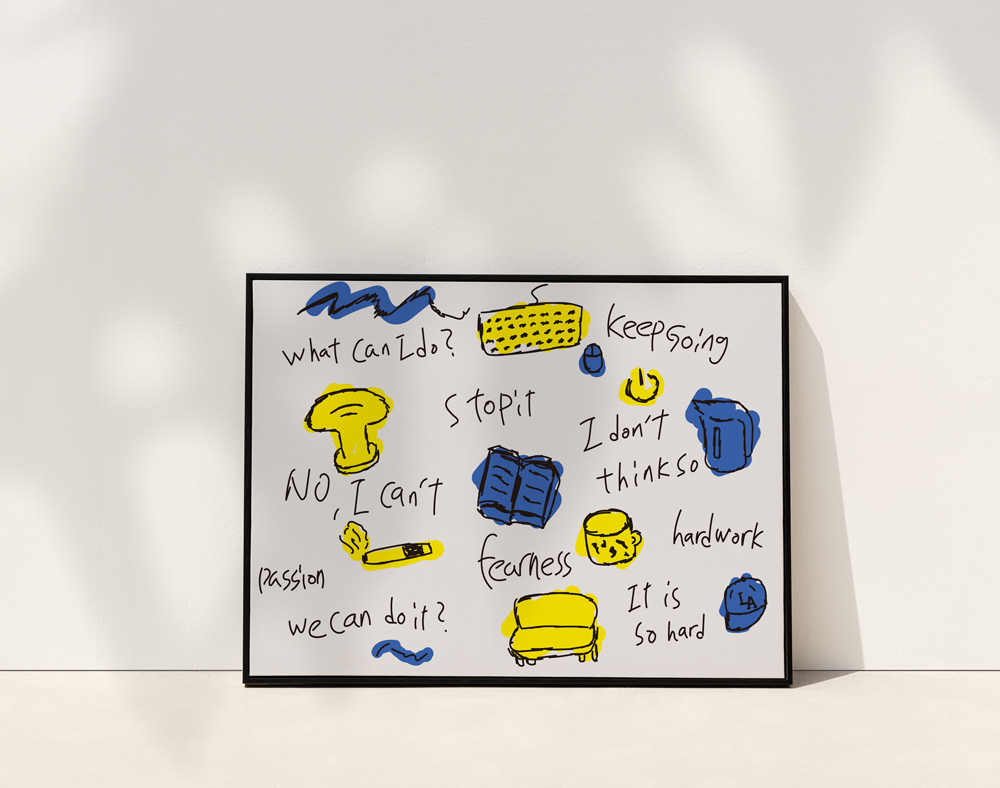 what can I do?
keep going
stop it
I don't
think so
NO, I can't
hardwork
fearness
passion
we can do it?
It is
so hard
LA